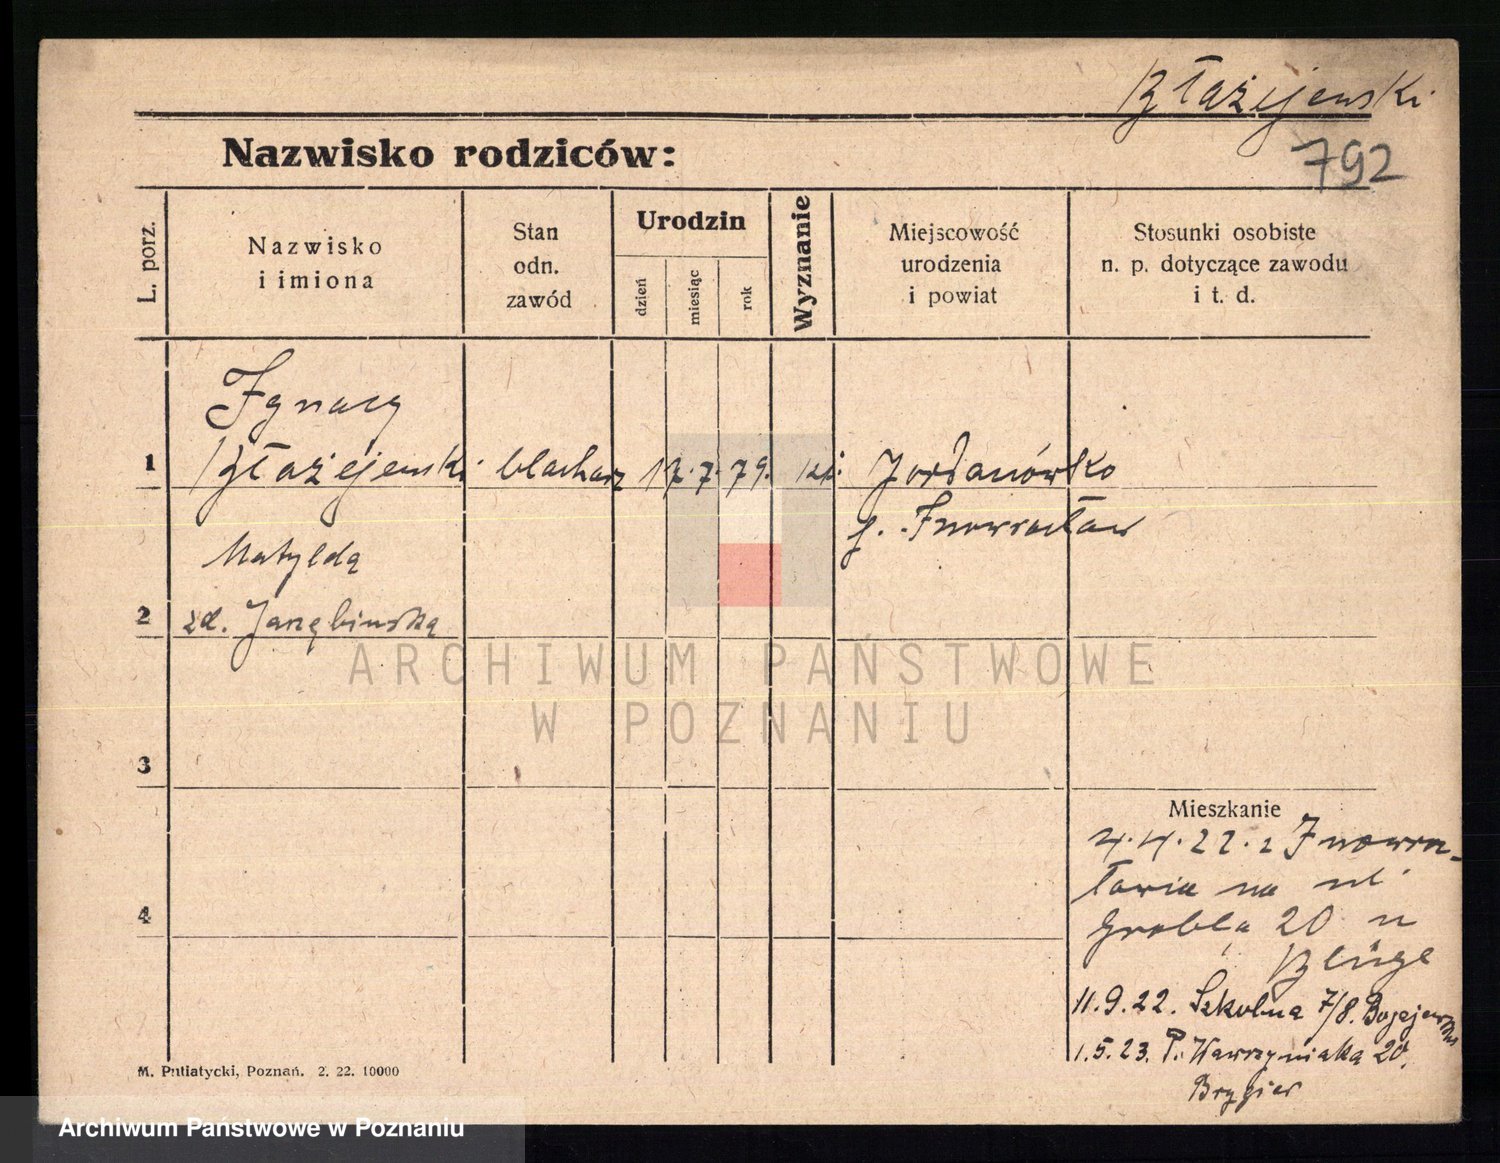 Błażejewski
792
Nazwisko rodziców:
L. porz.
Nazwisko
i imiona
Stan
odn.
zawód
Urodzin
dzień
miesiąc
rok
Wyznanie
Miejscowość
urodzenia
i powiat
Stosunki osobiste
n. p. dotyczące zawodu
i t. d.
Ignacy
1 Błażejewski blacharz 17. 7. 79. Jordanówko
p. Inowrocław
Matylda
2 zd. Jarzębińska
ARCHIWUM PAŃSTWOWE
W POZNANIU
3
Mieszkanie
4.4.22. z Inowro-
cławia na ul.
4
Grobla 20 u
Kluge
11.9.22. Szkolna 7/8.
1.5.23. P. Wawrzyniaka 20.
Brygier
M. Putiatycki, Poznań. 2. 22. 10000
Archiwum Państwowe w Poznaniu